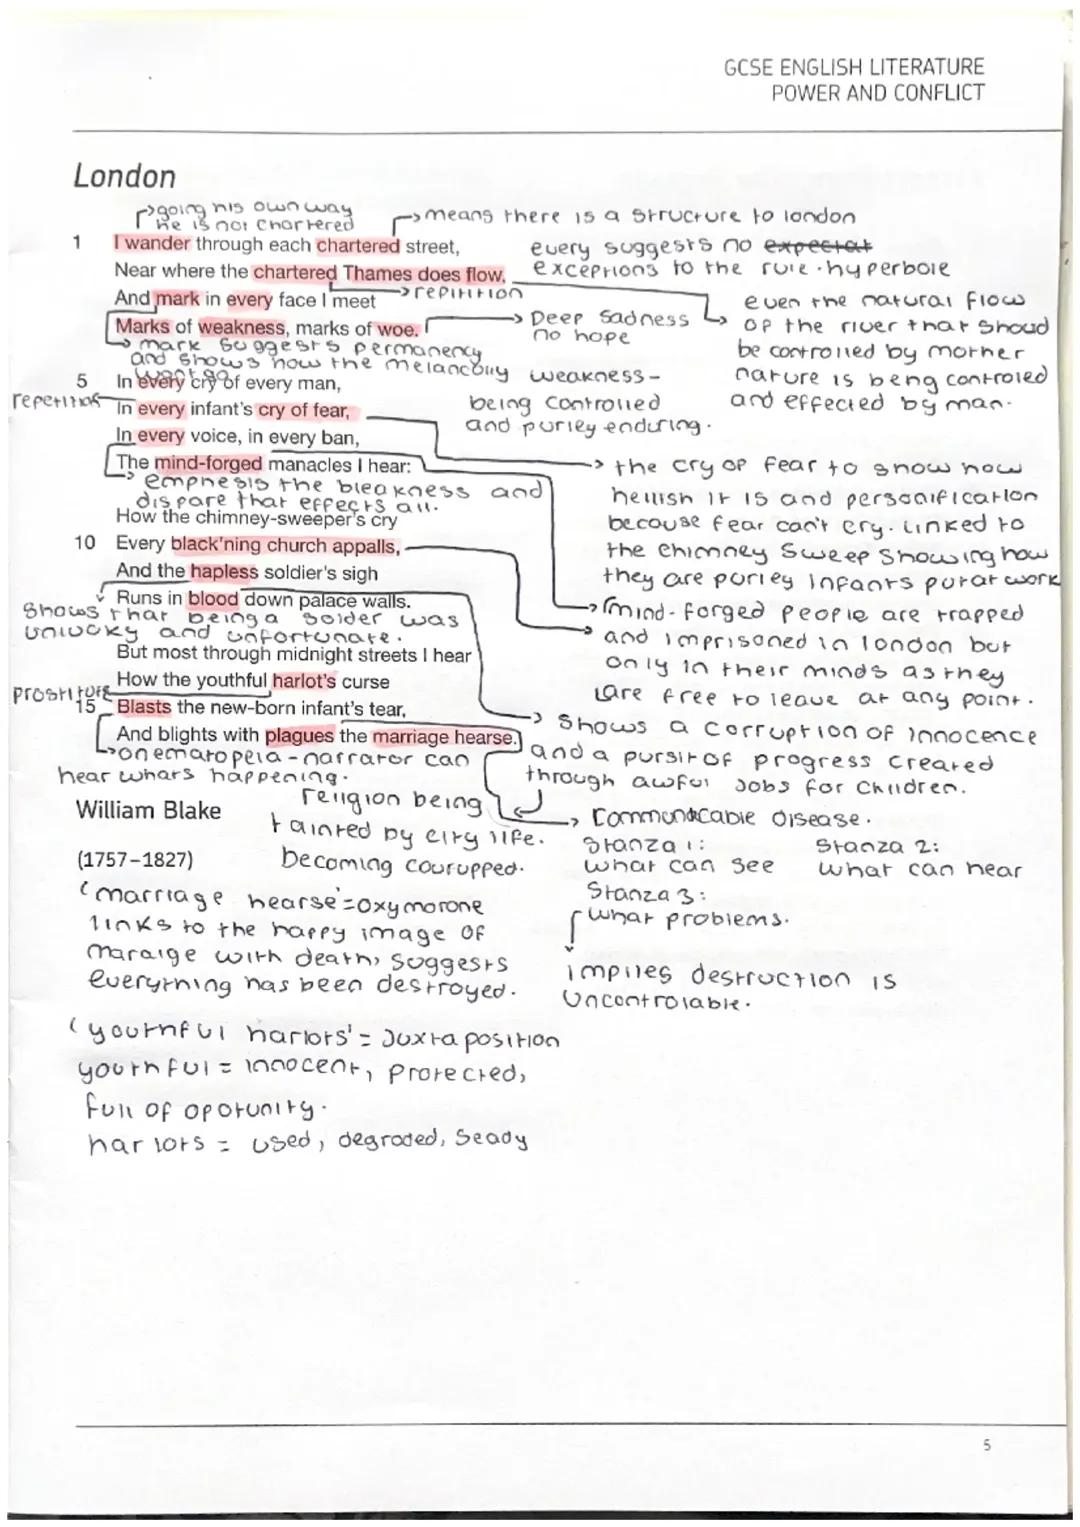 GCSE ENGLISH LITERATURE
POWER AND CONFLICT
London
going his own way
he is not chartered
means there is a structure to london
1 I wander through each chartered street,
every suggests no expectat
exceptions to the rule. hyperbole
Near where the chartered Thames does flow,
repitition
And mark in every face I meet
Marks of weakness, marks of woe.
Deep Sadness
no hope
even the natural flow
of the river that shoud
be controlled by mother
nature is being controled
and effected by man.
mark suggests permanency
and shows how the melancolly
wont go
weakness-
being controlled
and purley enduring.
5 In every cry of every man,
repetition
In every infant's cry of fear,
In every voice, in every ban,
The mind-forged manacles I hear:
emphesis the bleakness and
dispare that effects all.
the cry of fear to show how
hellish it is and personification
becouse fear can't cry. Linked to
the chimney sweep showing how
they are purley infants put at work
How the chimney-sweeper's cry
10 Every black'ning church appalls,
And the hapless soldier's sigh
Runs in blood down palace walls.
Shows that being a solder was
unlucky and unfortunate.
mind-forged people are trapped
and imprisoned in london but
only in their minds as they
are free to leave at any point.
But most through midnight streets I hear
How the youthful harlot's curse
prostitute
15 Blasts the new-born infant's tear,
And blights with plagues the marriage hearse.
Shows a corruption of innocence
and a pursit of progress created
through awful jobs for children.
onematopeia - narrator can
hear whats happening.
religion being
tainted by city life.
becoming courupped.
Communicable disease.
William Blake
(1757–1827)
Stanza 1:
what can see
Stanza 2:
what can hear
Stanza 3:
what problems.
implies destruction is
uncontrolable.
'marriage hearse'=oxymorone
links to the happy image of
maraige with death, suggests
everything has been destroyed.
'youthful harlots' = Juxtaposition
youthful = innocent, protected,
full of oportunity.
harlots = used, degraded, seady
5